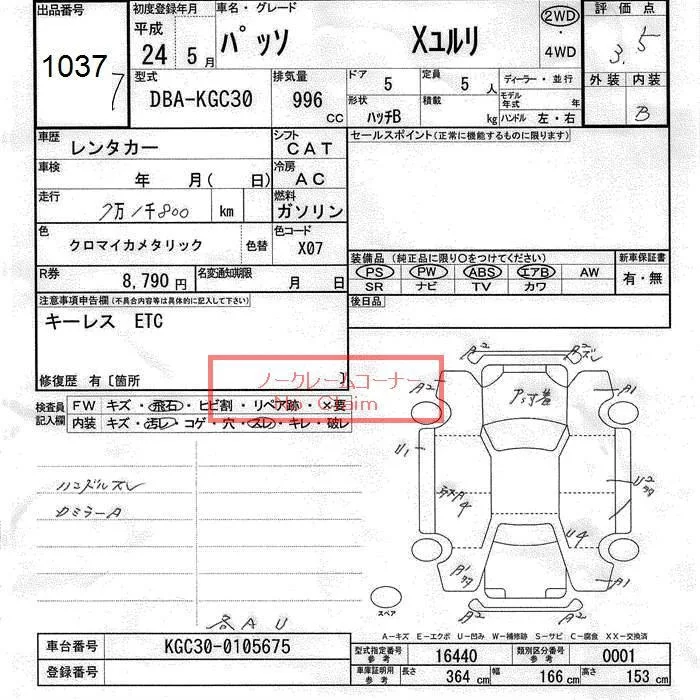 出品番号
1037
7
初度登録年月
平成
24 5 月
車名・グレード
パッソ Xユルリ
2WD
・
4WD
評価点
3.5
型式
DBA-KGC30
排気量
996
CC
ドア
5
定員
5 人
ディーラー・並行
形状
ハッチB
積載
kg
モデル年式 年
ハンドル 左・右
外装 内装
B
車歴
レンタカー
シフト
CAT
車検
年 月( 日)
冷房
AC
走行
7万1千800 km
燃料
ガソリン
色
クロマイカメタリック 色替
色コード
X07
R券
8,790 円
名変通知期限
月 日
セールスポイント(正常に機能するものに限ります)
装備品(純正品に限り〇をつけてください)
PS PW ABS エアB AW
SR ナビ TV カワ
新車保証書
有・無
後日品
注意事項申告欄(不具合内容等は具体的に記入して下さい)
キーレス ETC
修復歴 有〔箇所 〕
ノークレームコーナー
No Claim
検査員記入欄
FW キズ・飛石・ヒビ割・リペア跡・×要
内装 キズ・汚レ・コゲ・穴・スレ・キレ・破レ
ハンドルスレ
カミラーA
各AU
A2
A2
A1
U1
U2
U4
A1
A1
A2
A2
スペア
A-キズ E-エクボ U-凹み W-補修跡 S-サビ C-腐食 XX-交換済
車台番号 KGC30-0105675
登録番号
型式指定番号 参考 16440
類別区分番号 参考 0001
車庫証明用 参考 長さ 364 cm 幅 166 cm 高さ 153 cm